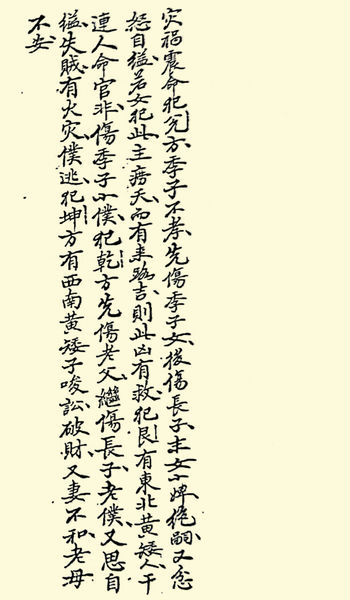 灾禍震命犯兑方季子不孝先傷季子女後傷長子主女小婢絶嗣又忿
怒自縊若女犯此主癆夭而有来路吉則此凶有救犯艮有東北黄矮人干
連人命官非傷季子小僕犯乾方先傷老父繼傷長子老僕又思自
縊失賊有火灾僕逃犯坤方有西南黄矮子唆訟破財又妻不和老母
不安